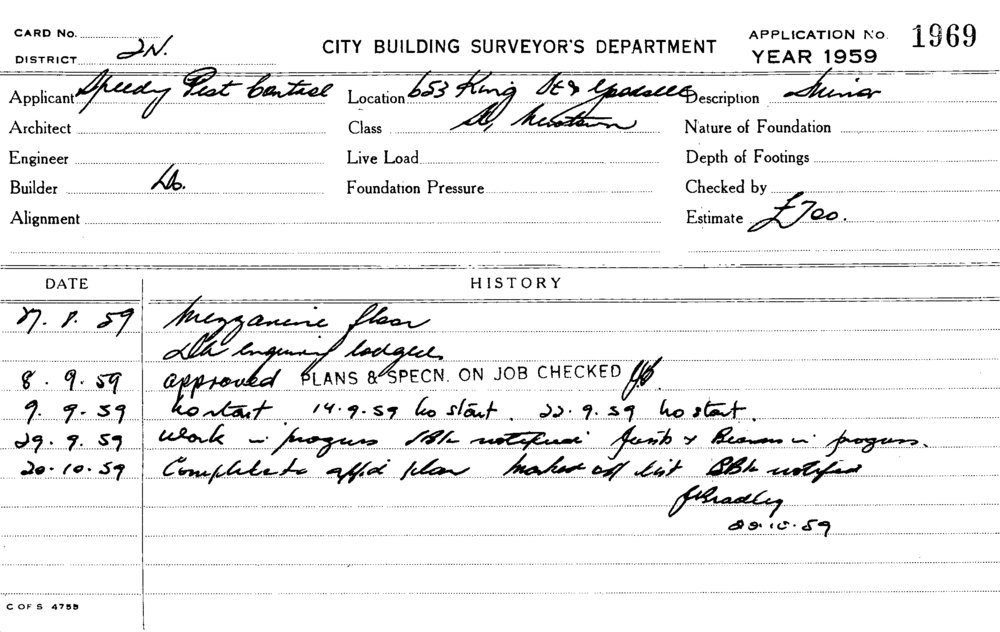 CARD No.
DISTRICT 2N.
CITY BUILDING SURVEYOR'S DEPARTMENT
APPLICATION No. 1969
YEAR 1959
Applicant Speedy Pest Control Location 653 King St & Description Minor
Architect Class St, Newtown Nature of Foundation
Engineer Live Load Depth of Footings
Builder Do. Foundation Pressure Checked by
Alignment Estimate £700.
DATE HISTORY
27. 8. 59 Mezzanine floor
DA enquiry lodged
8. 9. 59 approved PLANS & SPECN. ON JOB CHECKED
9. 9. 59 no start 14.9.59 no start. 22.9.59 no start.
29. 9. 59 Work in progress notified Joists & Bearers in progress.
20.10.59 Complete to app'd plan marked off list notified
JBradley
20.10.59
C OF S 4755